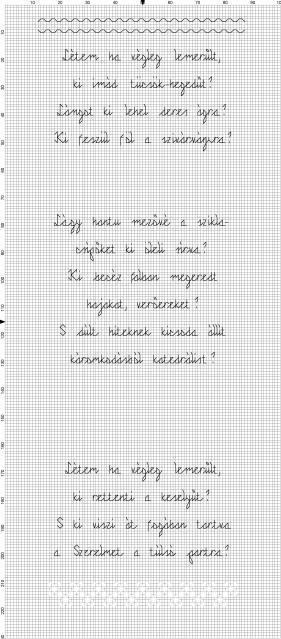 Létem ha végleg lemerült,
ki imád tücsök-hegedűt?
Lángot ki lehel deres ágra?
Ki feszül föl a szivárványra?
Lágy hantu mezővé a szikla-
csípőket ki öleli sírva?
Ki becéz falban megeredt
hajakat, verőereket?
S dúlt hiteknek kicsoda állít
káromkodásból katedrálist?
Létem ha végleg lemerült,
ki rettenti a keselyűt?
S ki viszi át fogában tartva
a Szerelmet a túlsó partra?